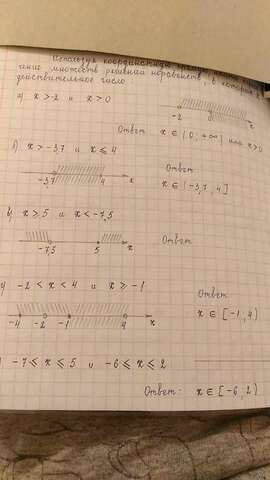 Используя координатную
множеств решений неравенств, в которых x
действительное число
а) x > -2 и x > 0
-2 0 x
Ответ x ∈ (0, +∞) или x > 0
б) x > -3,7 и x ⩽ 4
-3,7 4 x
Ответ
x ∈ (-3,7, 4]
в) x ⩾ 5 и x < -7,5
-7,5 5 x
Ответ
-2 < x < 4 и x ⩾ -1
-4 -2 -1 4 x
Ответ
x ∈ [-1, 4)
-7 ⩽ x ⩽ 5 и -6 ⩽ x ⩽ 2
Ответ: x ∈ [-6, 2)